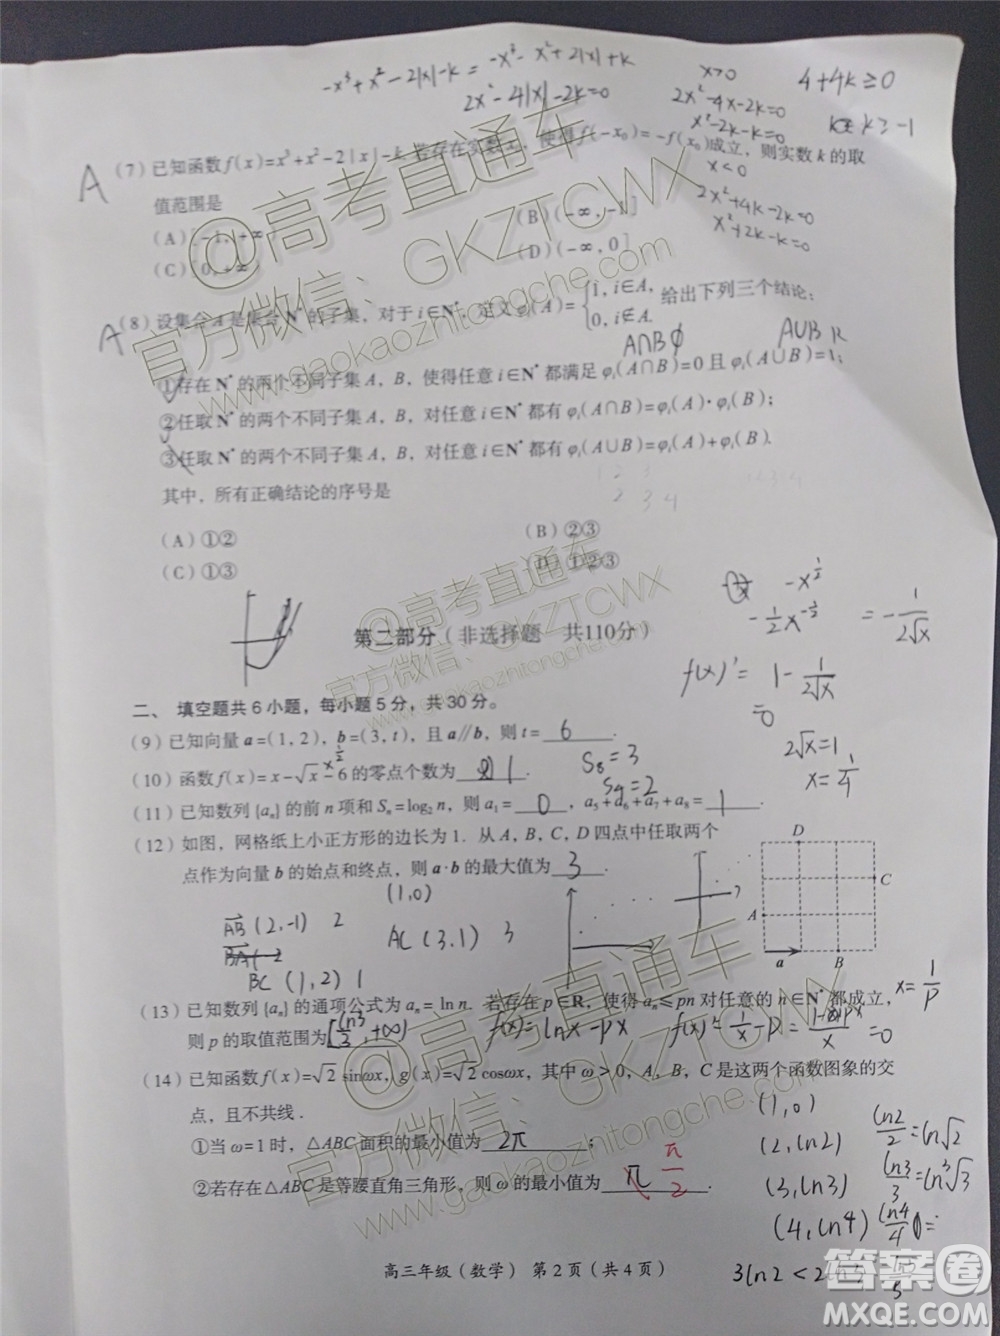 -x³+x²-2|x|-k = -x³-x²+2|x|+k
2x²-4|x|-2k=0
x>0
2x²-4x-2k=0
x²-2k-k=0
4+4k≥0
k≥-1
A
(7) 已知函数 f(x)=x³+x²-2|x|-k. 若存在实数 x₀, 使得 f(-x₀)=-f(x₀)成立, 则实数 k 的取
值范围是
x<0
2x²+4k-2k=0
x²+2k-k=0
(A) [-1,+∞)
(B) (-∞,-1]
(C) [0,+∞)
(D) (-∞,0]
A
(8) 设集合 A 是集合 N* 的子集, 对于 i∈N*, 定义 φᵢ(A)={1, i∈A, 0, i∉A. 给出下列三个结论:
A∩B ∅
A∪B R
①存在 N* 的两个不同子集 A, B, 使得任意 i∈N* 都满足 φᵢ(A∩B)=0 且 φᵢ(A∪B)=1;
②任取 N* 的两个不同子集 A, B, 对任意 i∈N* 都有 φᵢ(A∩B)=φᵢ(A)·φᵢ(B);
③任取 N* 的两个不同子集 A, B, 对任意 i∈N* 都有 φᵢ(A∪B)=φᵢ(A)+φᵢ(B).
1 2 3
2 3 4
其中, 所有正确结论的序号是
(A) ①②
(B) ②③
(C) ①③
(D) ①②③
-x^½
-½x^-½ = -1/(2√x)
第二部分(非选择题 共110分)
f(x)'= 1-1/(2√x)
=0
2√x=1
x=1/4
二、 填空题共 6 小题, 每小题 5 分, 共 30 分。
(9) 已知向量 a=(1,2), b=(3,t), 且 a∥b, 则 t= 6 .
x^½
(10) 函数 f(x)=x-√x-6 的零点个数为 1 .
S₈=3
S₄=2
(11) 已知数列{aₙ}的前 n 项和 Sₙ=log₂n, 则 a₁= 0 , a₅+a₆+a₇+a₈= 1 .
(12) 如图, 网格纸上小正方形的边长为 1. 从 A, B, C, D 四点中任取两个
点作为向量 b 的始点和终点, 则 a·b 的最大值为 3 .
D
C
A
a
B
(1,0)
AB (2,-1) 2
AC (3.1) 3
BC (1,2) 1
(13) 已知数列{aₙ}的通项公式为 aₙ=ln n. 若存在 p∈R, 使得 aₙ≤pn 对任意的 n∈N* 都成立,
则 p 的取值范围为 [ln3/3,+∞)
f(x)=lnx-px
f(x)'=1/x-p=(1-px)/x=0
x=1/p
(14) 已知函数 f(x)=√2 sinωx, g(x)=√2 cosωx, 其中 ω>0, A, B, C 是这两个函数图象的交
点, 且不共线.
①当 ω=1 时, △ABC 面积的最小值为 2π ;
②若存在△ABC 是等腰直角三角形, 则 ω 的最小值为 π π/2 .
(1,0)
(2,ln2)
(3,ln3)
(4,ln4)
ln2/2=ln√2
ln3/3=ln³√3
ln4/4
3ln2<2ln3
高三年级(数学) 第 2 页(共 4 页)
@高考直通车
官方微信: GKZTCWX
www.gaokaozhitongche.com
@高考直通车
官方微信: GKZTCWX
www.gaokaozhitongche.com
@高考直通车
官方微信: GKZTCWX
www.gaokaozhitongche.com
答案圈
MXQE.COM